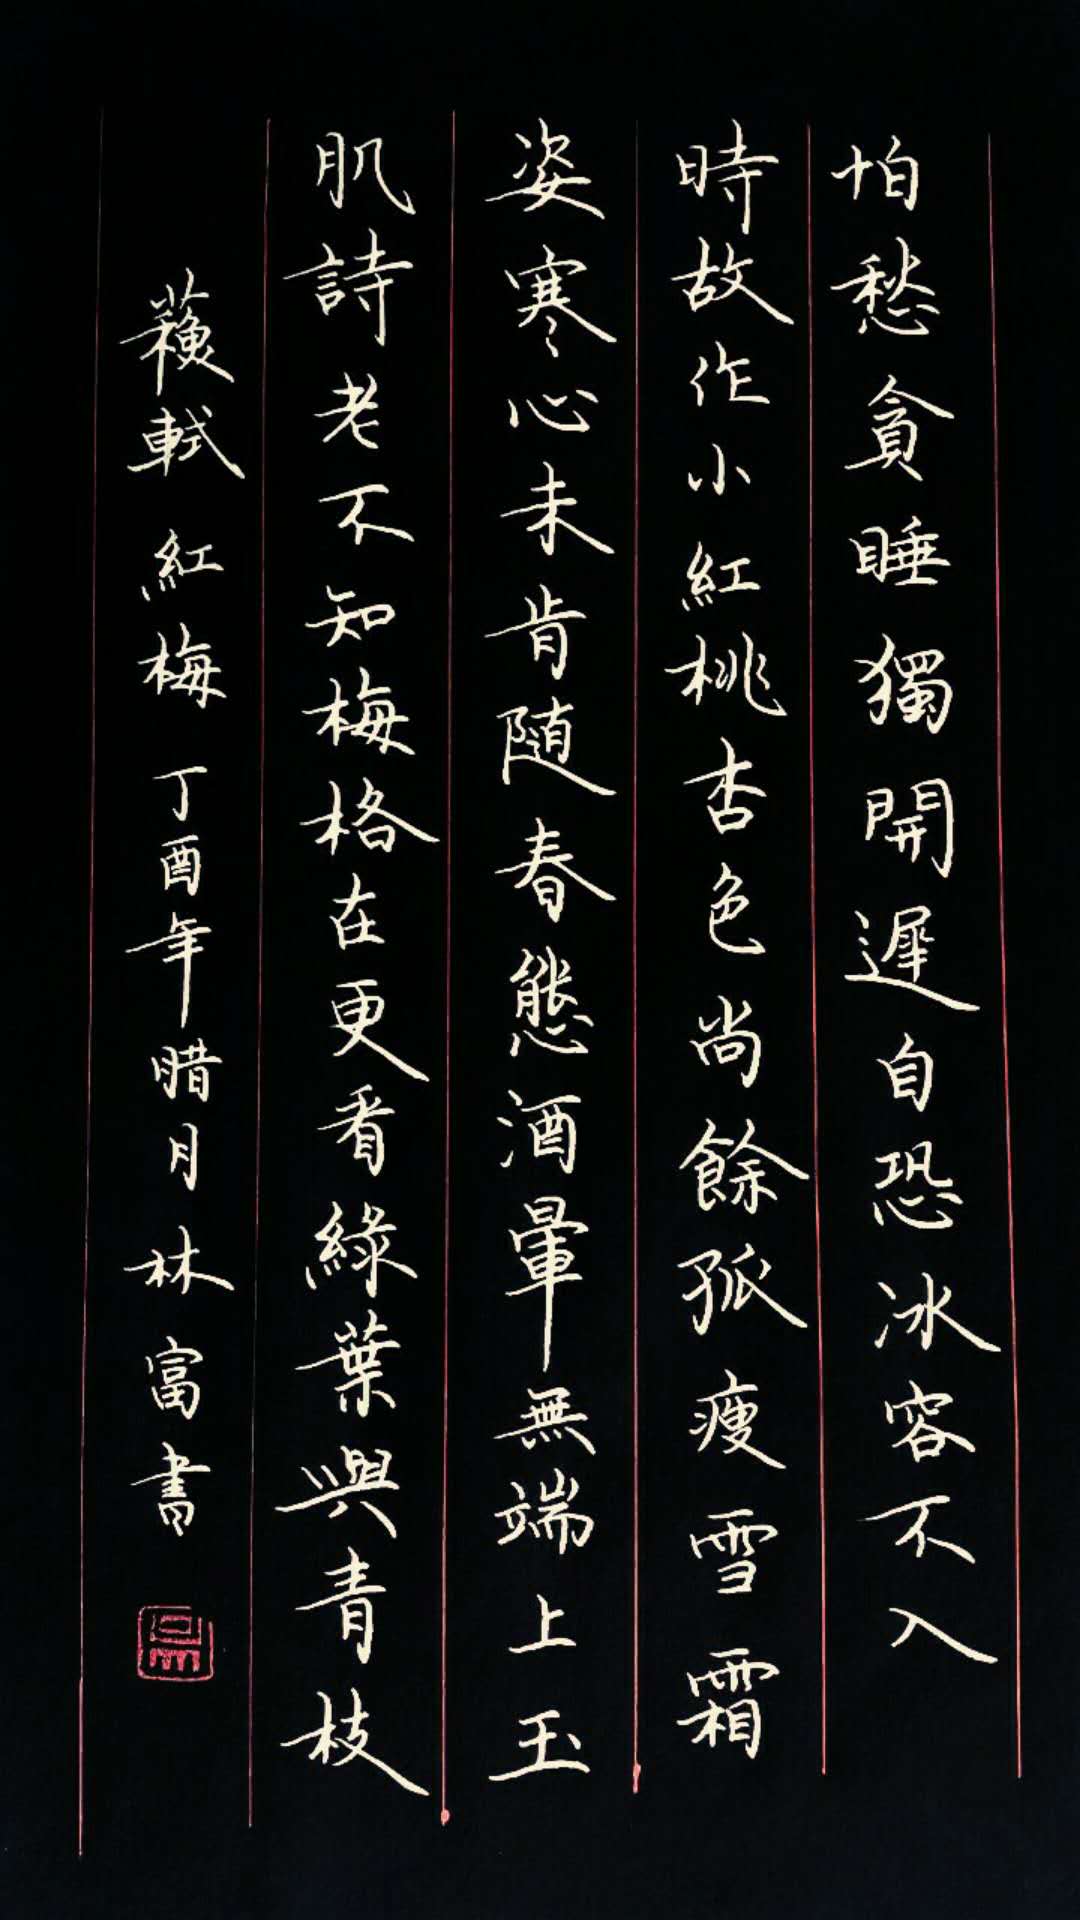 怕愁貪睡獨開遲自恐冰容不入
時故作小紅桃杏色尚餘孤瘦雪霜
姿寒心未肯随春態酒暈無端上玉
肌詩老不知梅格在更看綠葉與青枝
蘇軾 紅梅 丁酉年腊月林富書